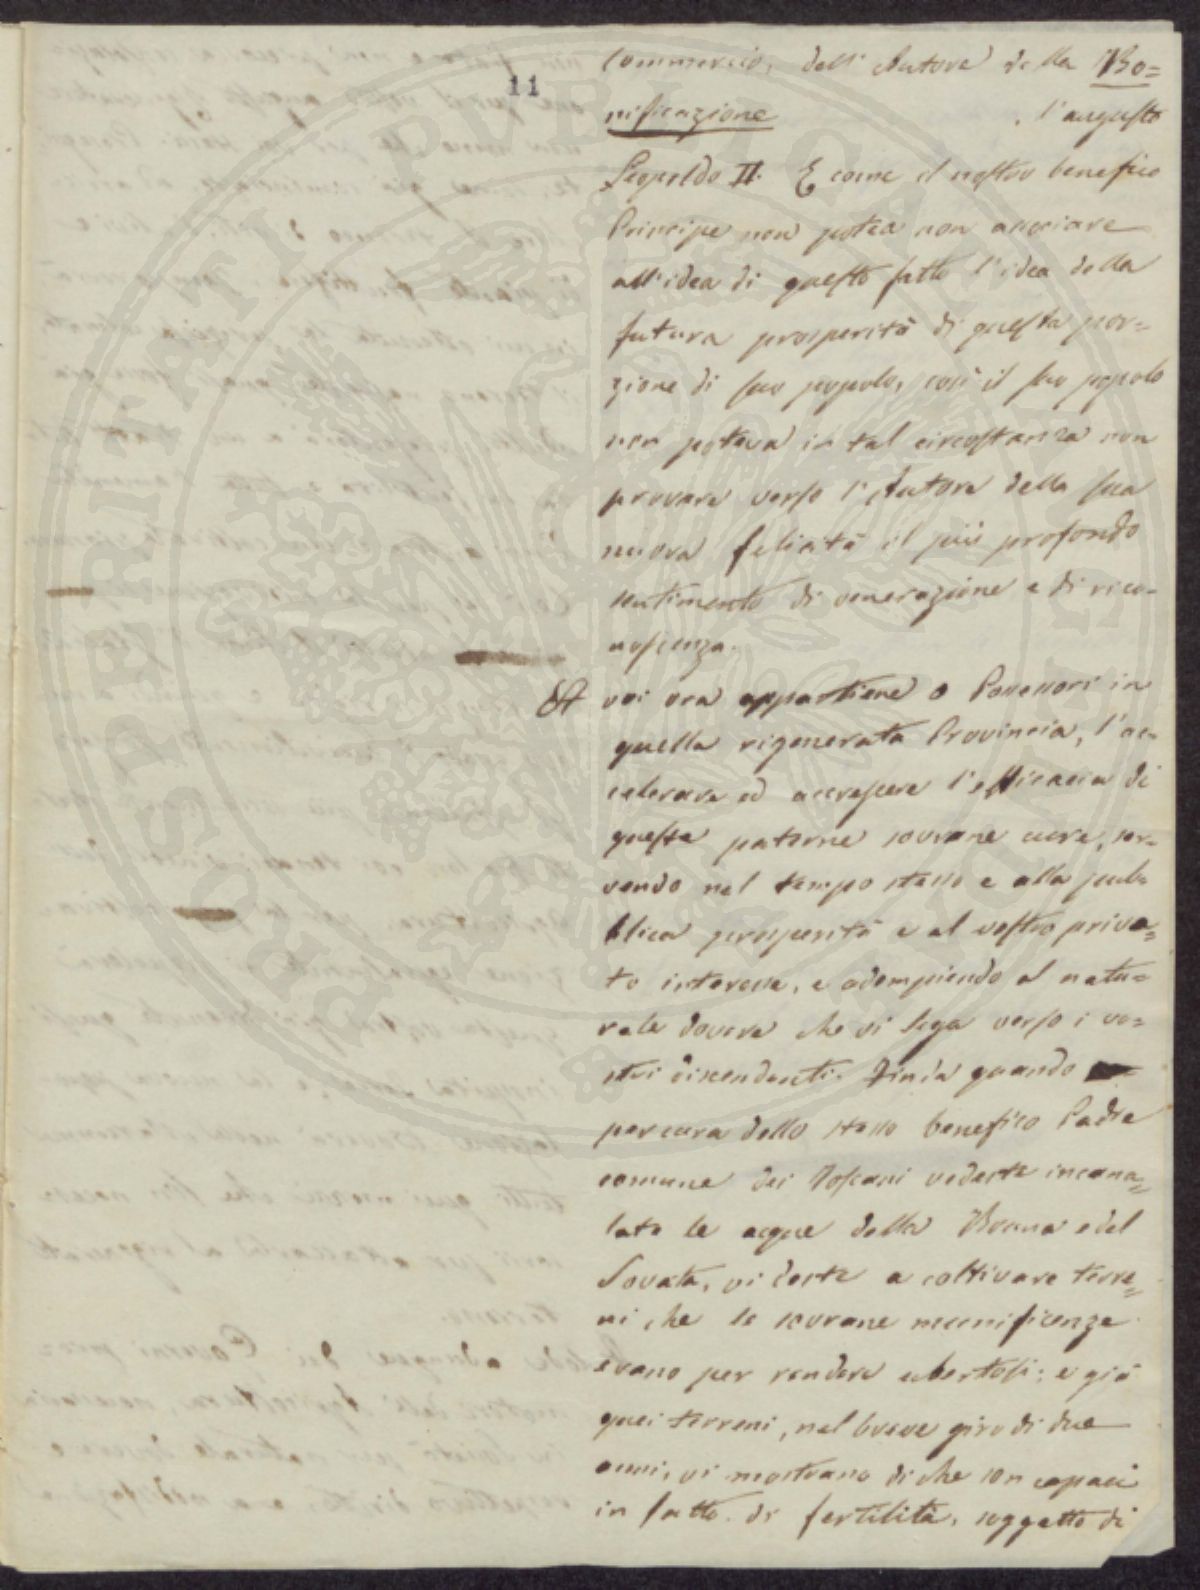 11
commercio, dell'Autore della Bo=
nificazione l'augusto
Leopoldo II. E come il nostro benefico
Principe non potea non associare
all'idea di questo fatto l'idea della
futura prosperità di questa por=
zione di suo popolo, così il suo popolo
non poteva in tal circostanza non
provare verso l'Autore della sua
nuova felicità il più profondo
sentimento di venerazione e di rico-
noscenza.
A voi ora appartiene o Possessori in
quella rigenerata Provincia, l'ac-
celerare ed accrescere l'efficacia di
queste paterne sovrane cure, ser-
vendo nel tempo stesso e alla pub-
blica prosperità e al vostro priva=
to interesse, e adempiendo al natu=
rale dovere che vi lega verso i vo=
stri discendenti. Finía quando
per cura dello stesso benefico Padre
comune dei Toscani vedeste incana=
late le acque della Bruna e del
Sovata, vi deste a coltivare terre=
ni che le sovrane munificenze
erano per rendere ubertosi; e già
quei terreni, nel breve giro di due
anni, vi mostrano di che son capaci
in fatto di fertilità, soggetto di
PROSPERITATI PUBLICAE